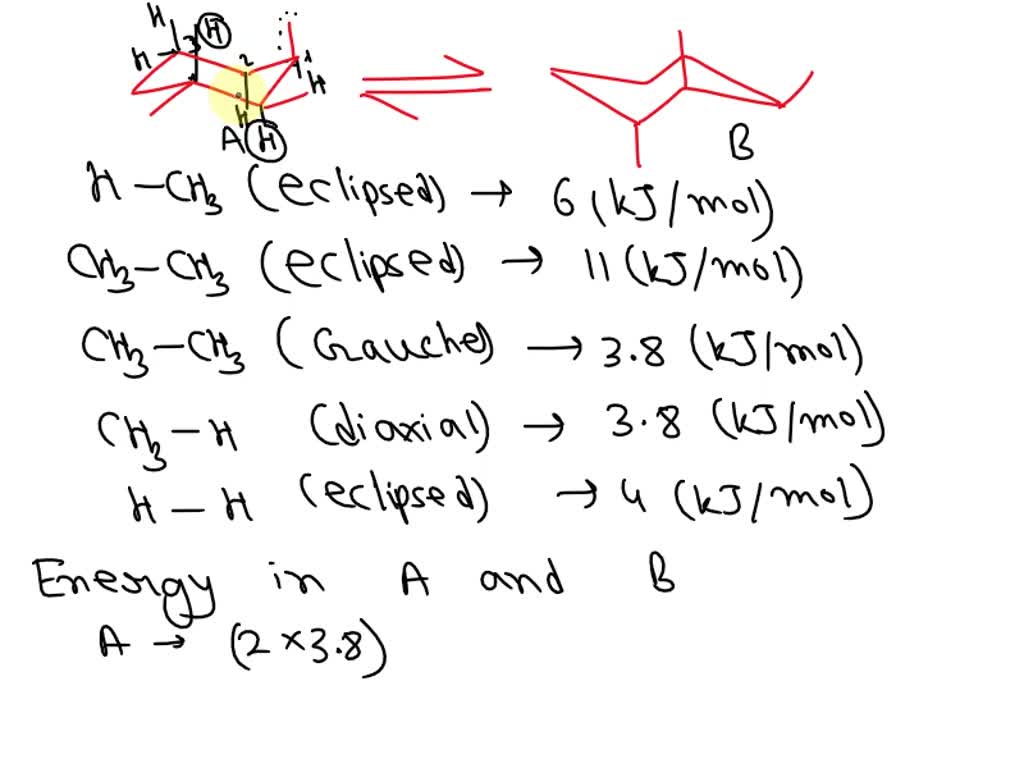 H
H
H
3
2
1
H
H
A
H
B
H - CH3 (eclipsed) → 6 (kJ/mol)
CH3 - CH3 (eclipsed) → 11 (kJ/mol)
CH3 - CH3 (Gauche) → 3.8 (kJ/mol)
CH3 - H (diaxial) → 3.8 (kJ/mol)
H - H (eclipsed) → 4 (kJ/mol)
Energy in A and B
A → (2 × 3.8)